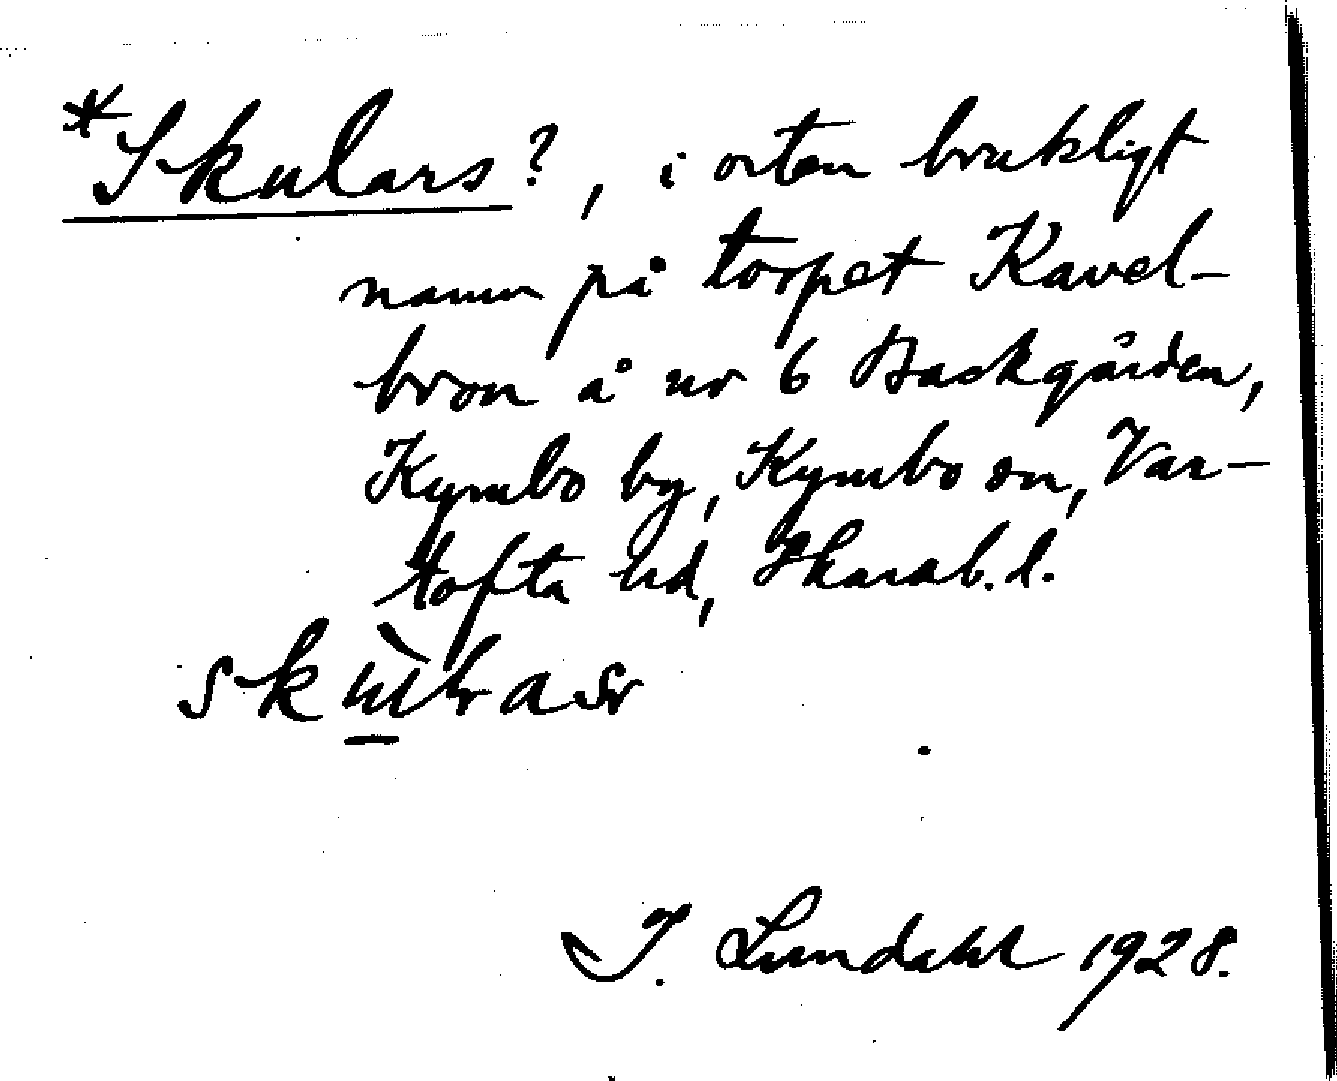 *Skulars?, i orten brukligt
namn på torpet Kavel-
bron å nr 6 Backgården,
Kymbo by, Kymbo sn, Var-
tofta hd, Skarab. l.
I. Lundahl 1928.